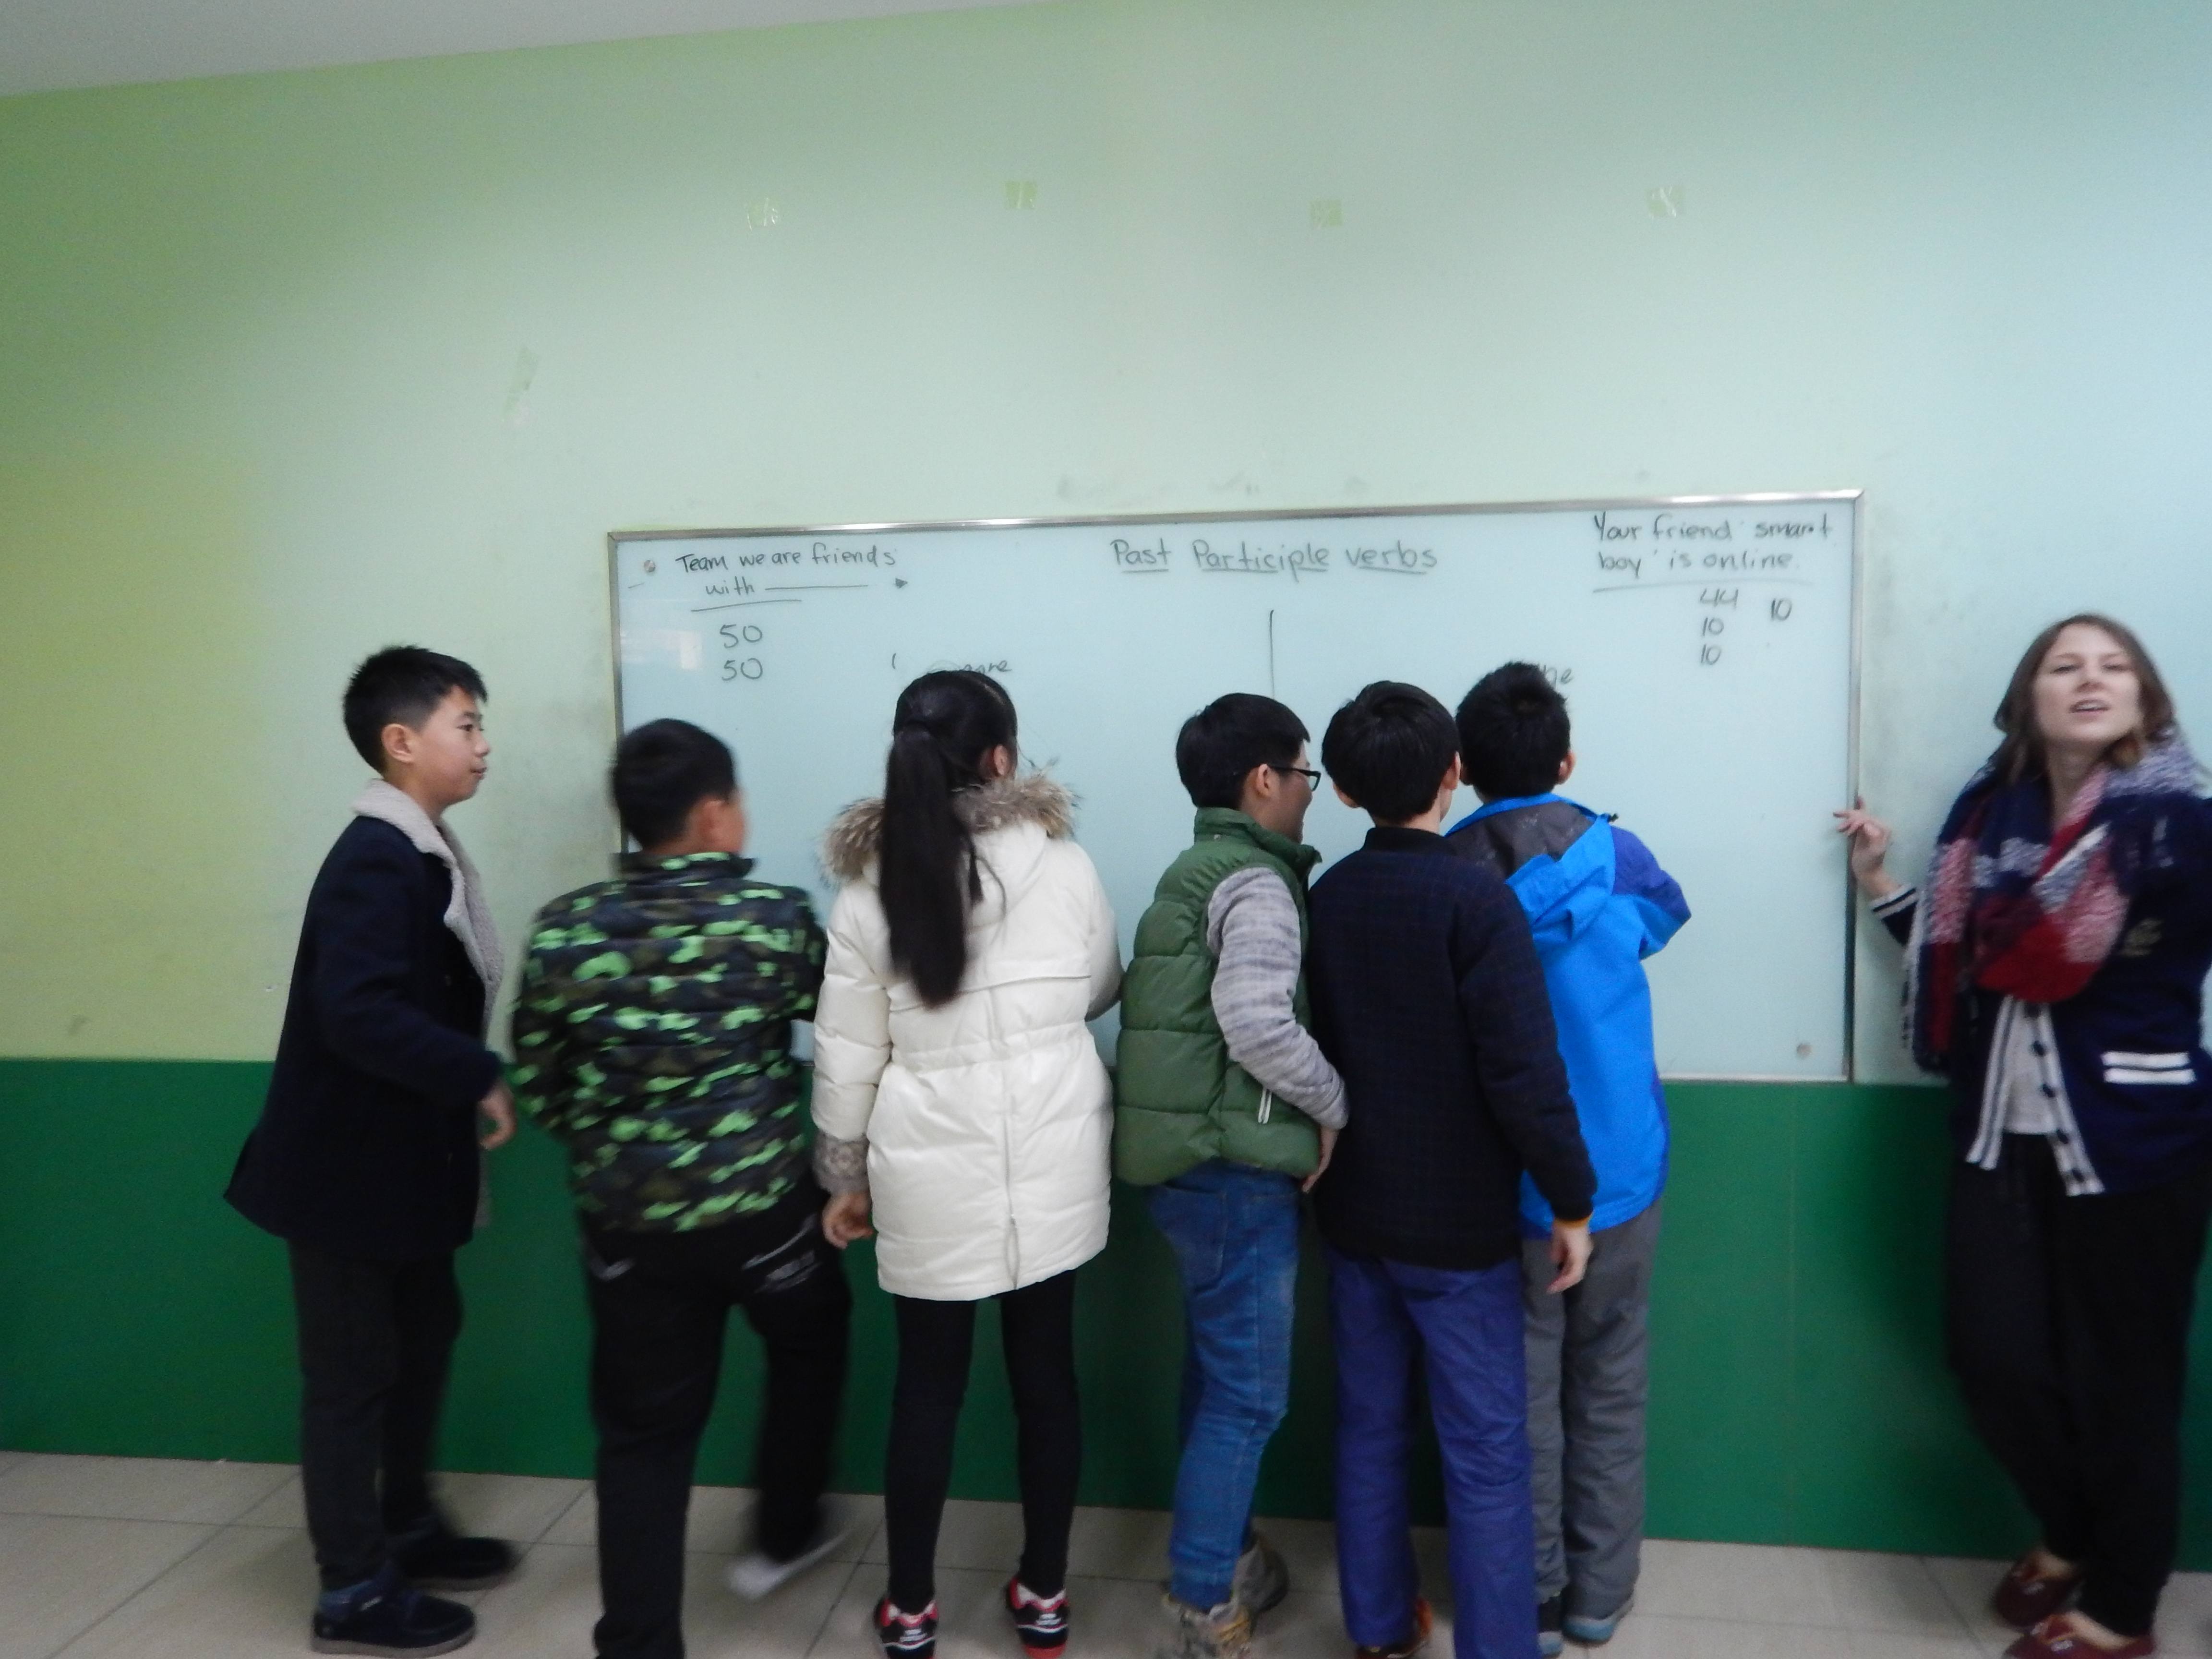 Team we are friends
with
50
50
Past Participle verbs
Your friend 'smart
boy' is online.
44 10
10
10